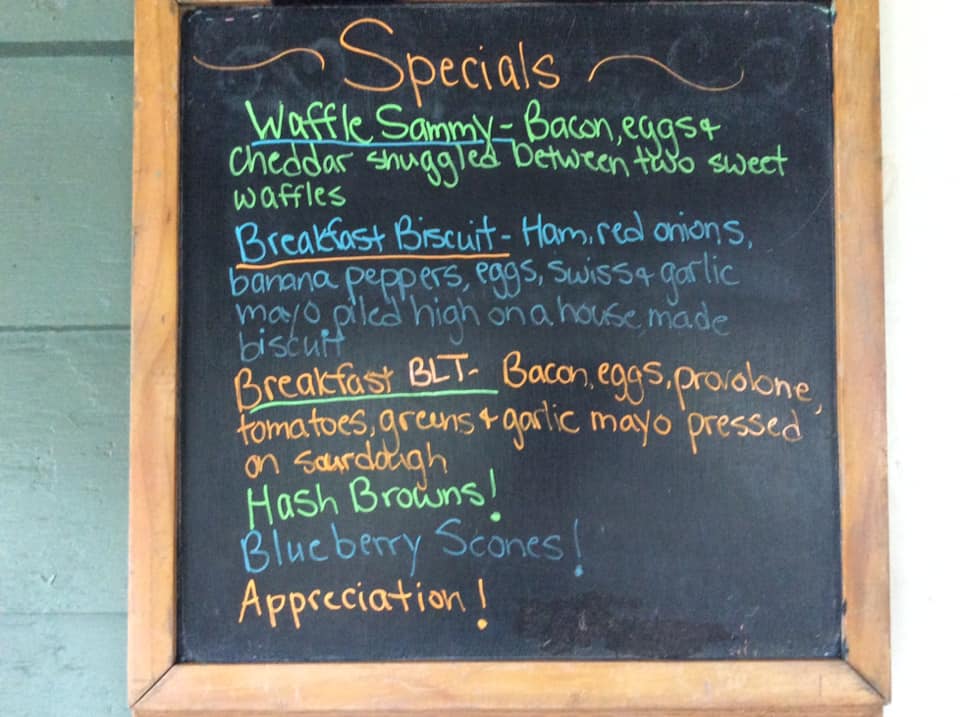 Specials
Waffle Sammy - Bacon, eggs &
cheddar snuggled between two sweet
waffles
Breakfast Biscuit - Ham, red onions,
banana peppers, eggs, swiss & garlic
mayo piled high on a house made
biscuit
Breakfast BLT - Bacon, eggs, provolone,
tomatoes, greens & garlic mayo pressed
on sourdough
Hash Browns!
Blueberry Scones!
Appreciation!